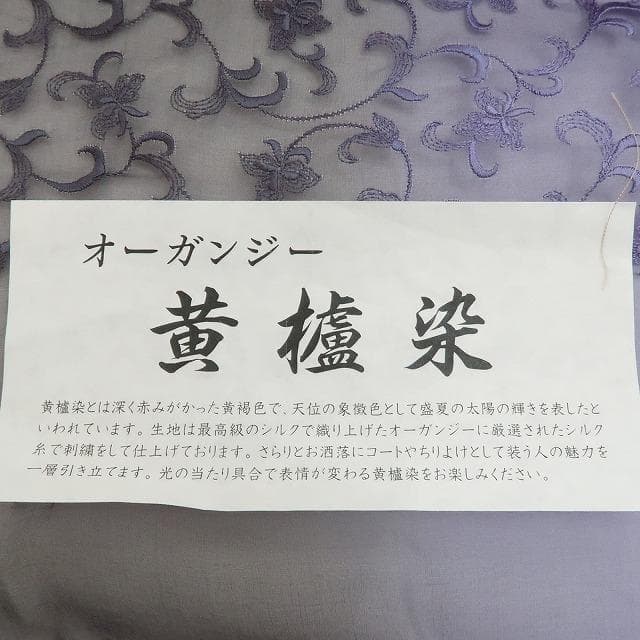 オーガンジー
黄櫨染
黄櫨染とは深く赤みがかった黄褐色で、天位の象徴色として盛夏の太陽の輝きを表したと
いわれています。生地は最高級のシルクで織り上げたオーガンジーに厳選されたシルク
糸で刺繍をして仕上げております。さらりとお洒落にコートやちりよけとして装う人の魅力を
一層引き立てます。光の当たり具合で表情が変わる黄櫨染をお楽しみください。